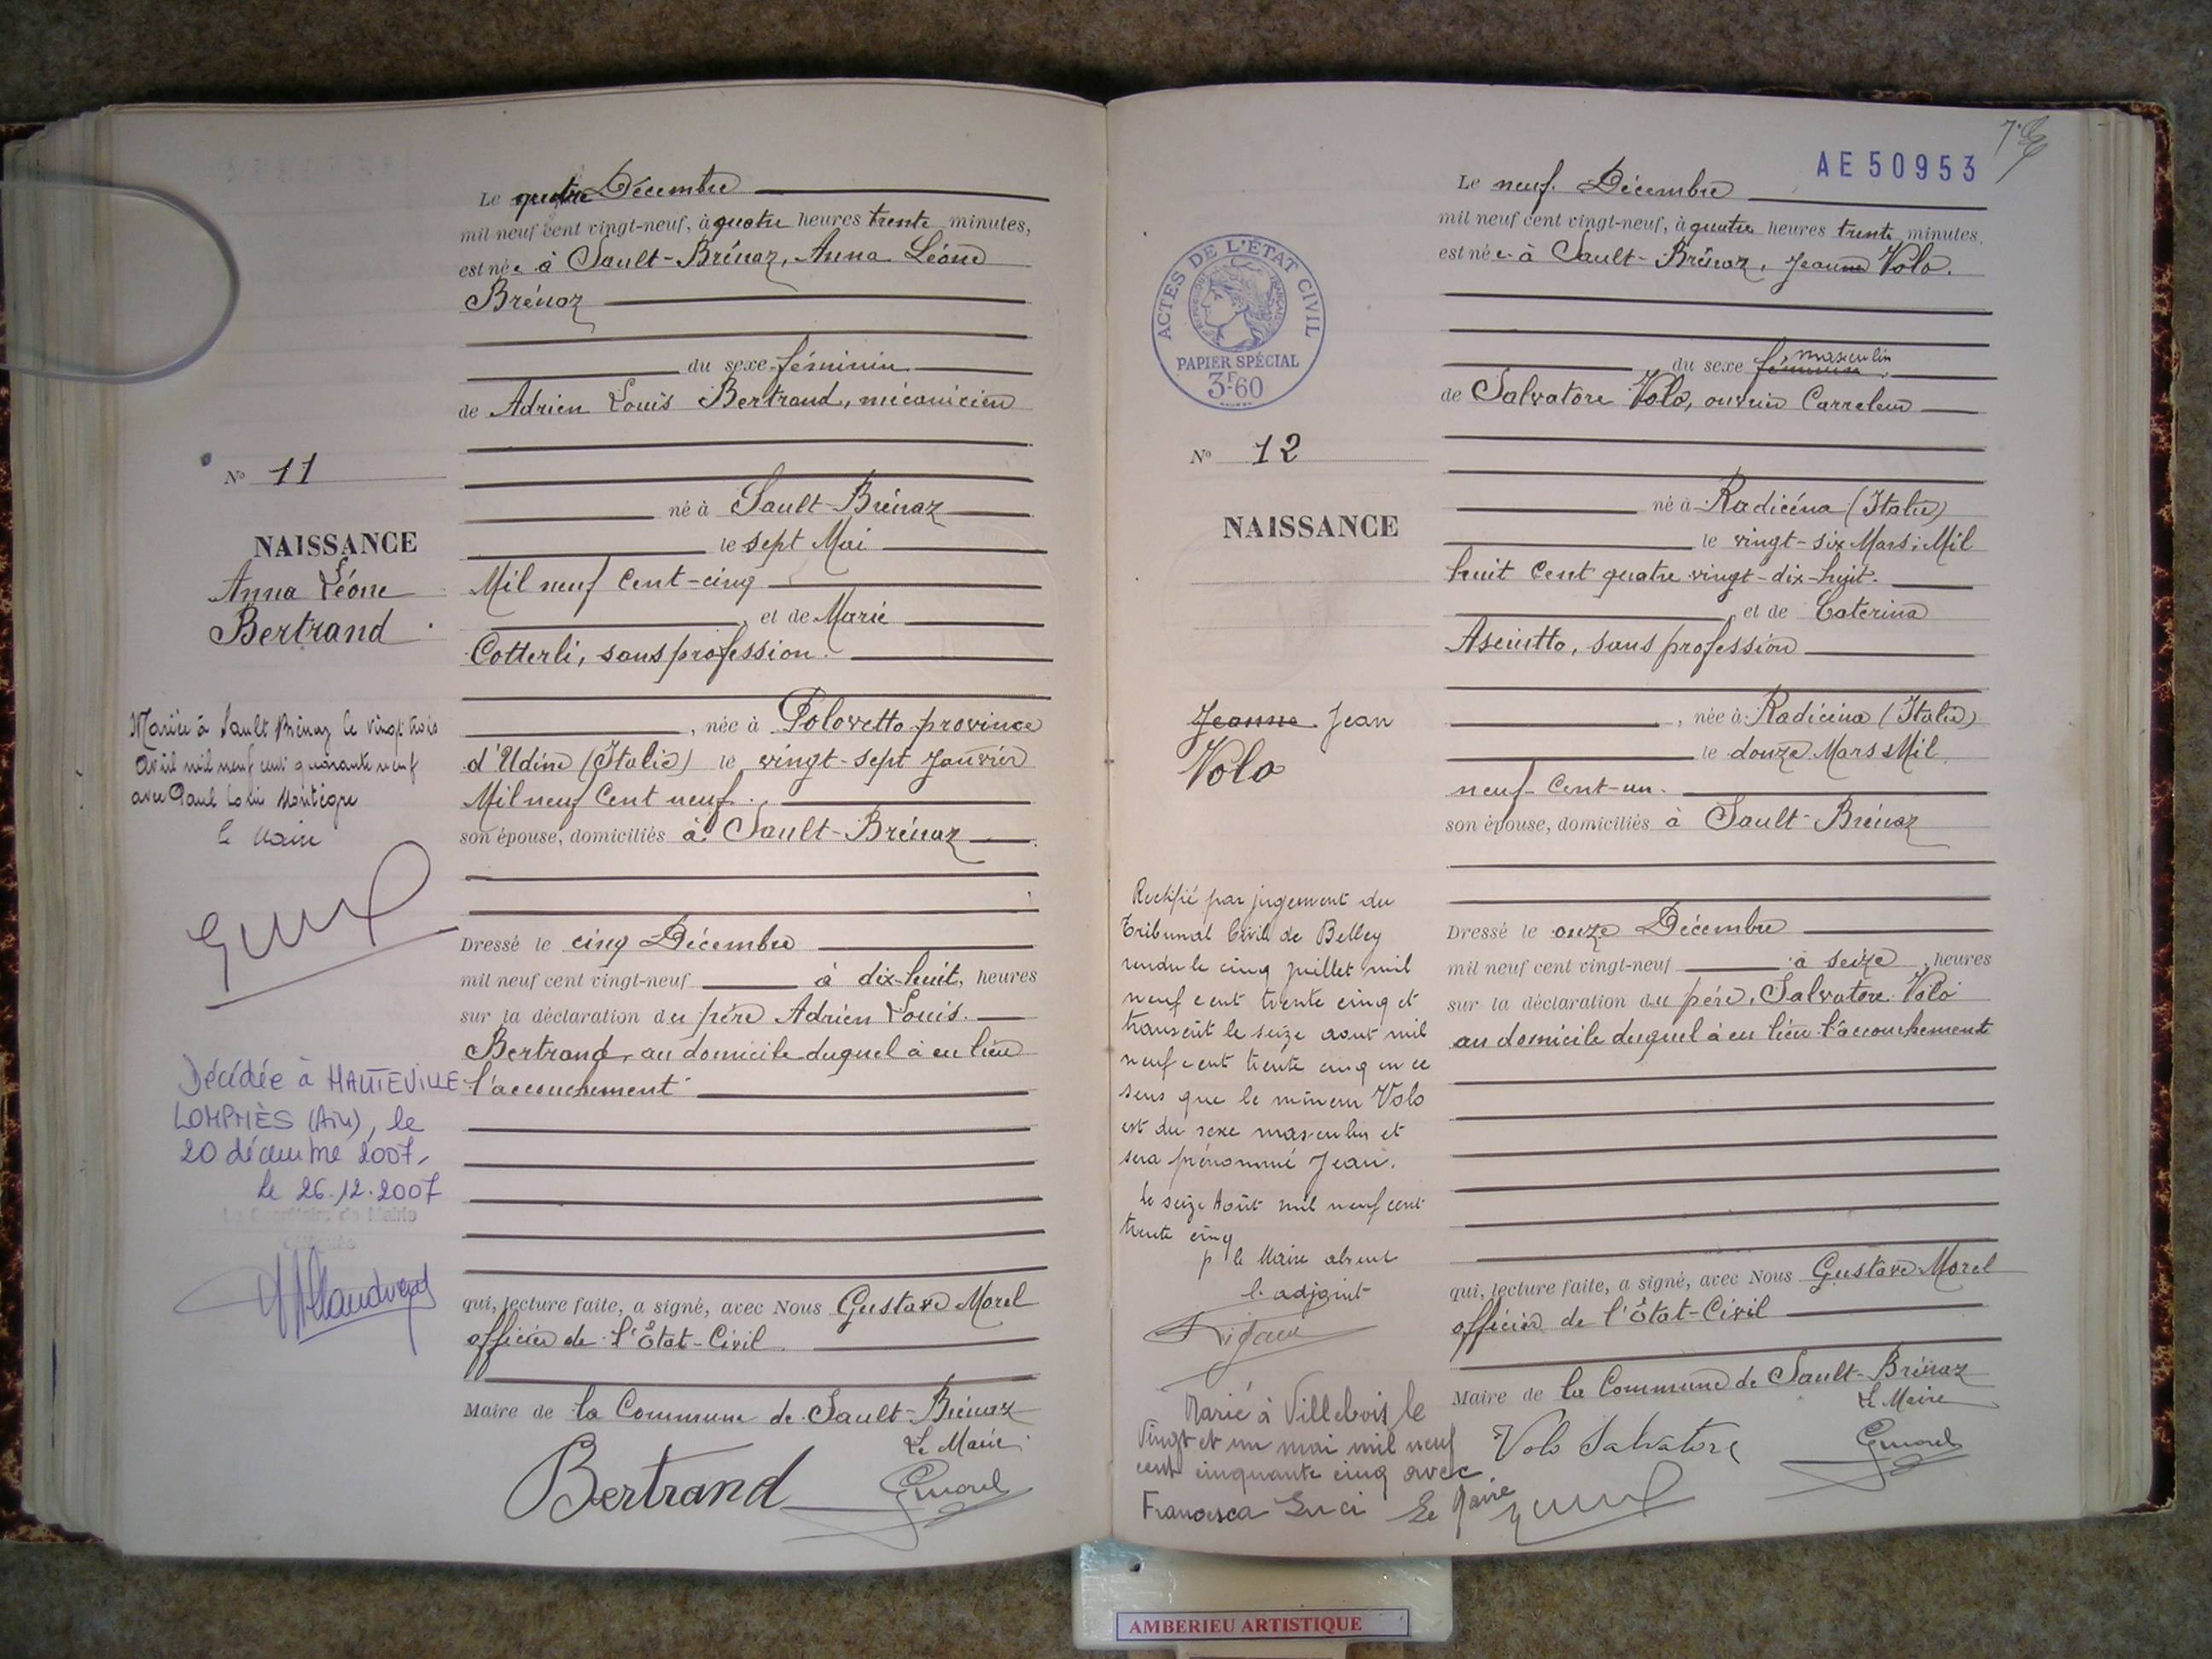 Le quatre Décembre
mil neuf cent vingt-neuf, à quatre heures trente minutes,
est née à Sault-Brénaz, Anna Léone
Brénaz
du sexe féminin
de Adrien Louis Bertrand, mécanicien
né à Sault-Brénaz
le sept Mai
Mil neuf Cent-cinq
, et de Marie
Cotterli, sans profession.
, née à Polovetto province
d'Udine (Italie) le vingt-sept Janvier
Mil neuf Cent neuf.
son épouse, domiciliés à Sault-Brénaz
Dressé le cinq Décembre
mil neuf cent vingt-neuf à dix-huit, heures
sur la déclaration du père Adrien Louis.
Bertrand, au domicile duquel à eu lieu
l'accouchement
qui, lecture faite, a signé, avec Nous Gustave Morel
officier de l'État-Civil
Maire de la Commune de Sault-Brénaz
Le Maire
Bertrand Gmorel
N° 11
NAISSANCE
Anna Léone
Bertrand
Mariée à Sault Brénaz le vingt trois
Avril mil neuf cent quarante neuf
avec Paul Montègre
le Maire
Décédée à HAUTEVILLE
LOMPNÈS (Ain), le
20 décembre 2007,
le 26.12.2007
AE 50953
Le neuf Décembre
mil neuf cent vingt-neuf, à quatre heures trente minutes.
est née à Sault-Brénaz, Jeanne Volo.
masculin
du sexe féminin
de Salvatore Volo, ouvrier Carreleur
né à Radicéna (Italie)
le vingt-six Mars Mil
huit Cent quatre vingt-dix-huit.
, et de Caterina
Asciutto, sans profession
, née à Radicina (Italie)
le douze Mars Mil
neuf-Cent-un.
son épouse, domiciliés à Sault-Brénaz
Dressé le onze Décembre
mil neuf cent vingt-neuf à seize, heures
sur la déclaration du père, Salvatore Volo
au domicile duquel à eu lieu l'accouchement
qui, lecture faite, a signé, avec Nous Gustave Morel
officier de l'État-Civil
Maire de la Commune de Sault-Brénaz
Le Maire
Volo Salvatore Gmorel
ACTES DE L'ÉTAT CIVIL
RÉPUBLIQUE FRANÇAISE
PAPIER SPÉCIAL
3F60
N° 12
NAISSANCE
Jeanne Jean
Volo
Rectifié par jugement du
Tribunal Civil de Belley
rendu le cinq juillet mil
neuf cent trente cinq et
transcrit le seize aout mil
neuf cent trente cinq en ce
sens que le mineur Volo
est du sexe masculin et
sera prénommé Jean.
le seize Août mil neuf cent
trente cinq
p le Maire absent
l'adjoint
Marié à Villebois le
vingt et un mai mil neuf
cent cinquante cinq avec
Francesca Luci Le Maire
AMBERIEU ARTISTIQUE